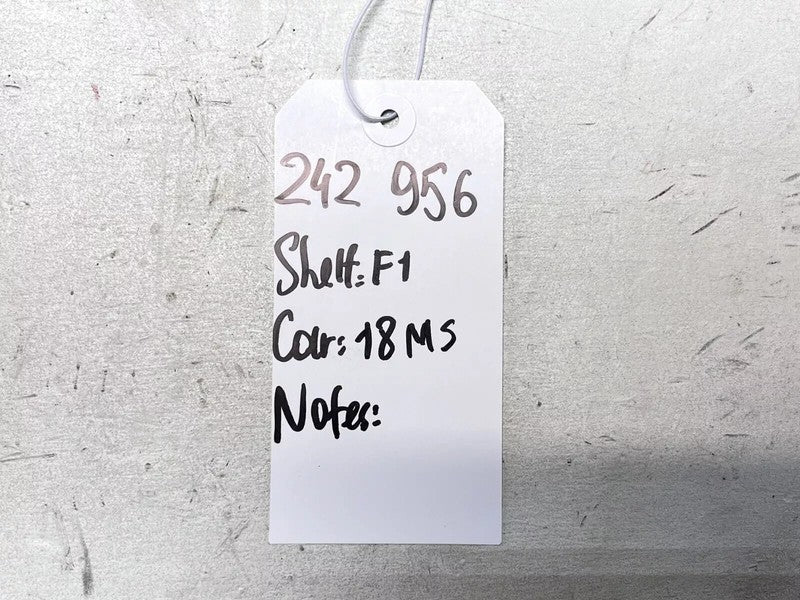 242 956
Shelf: F1
Car: 18 MS
Notes: